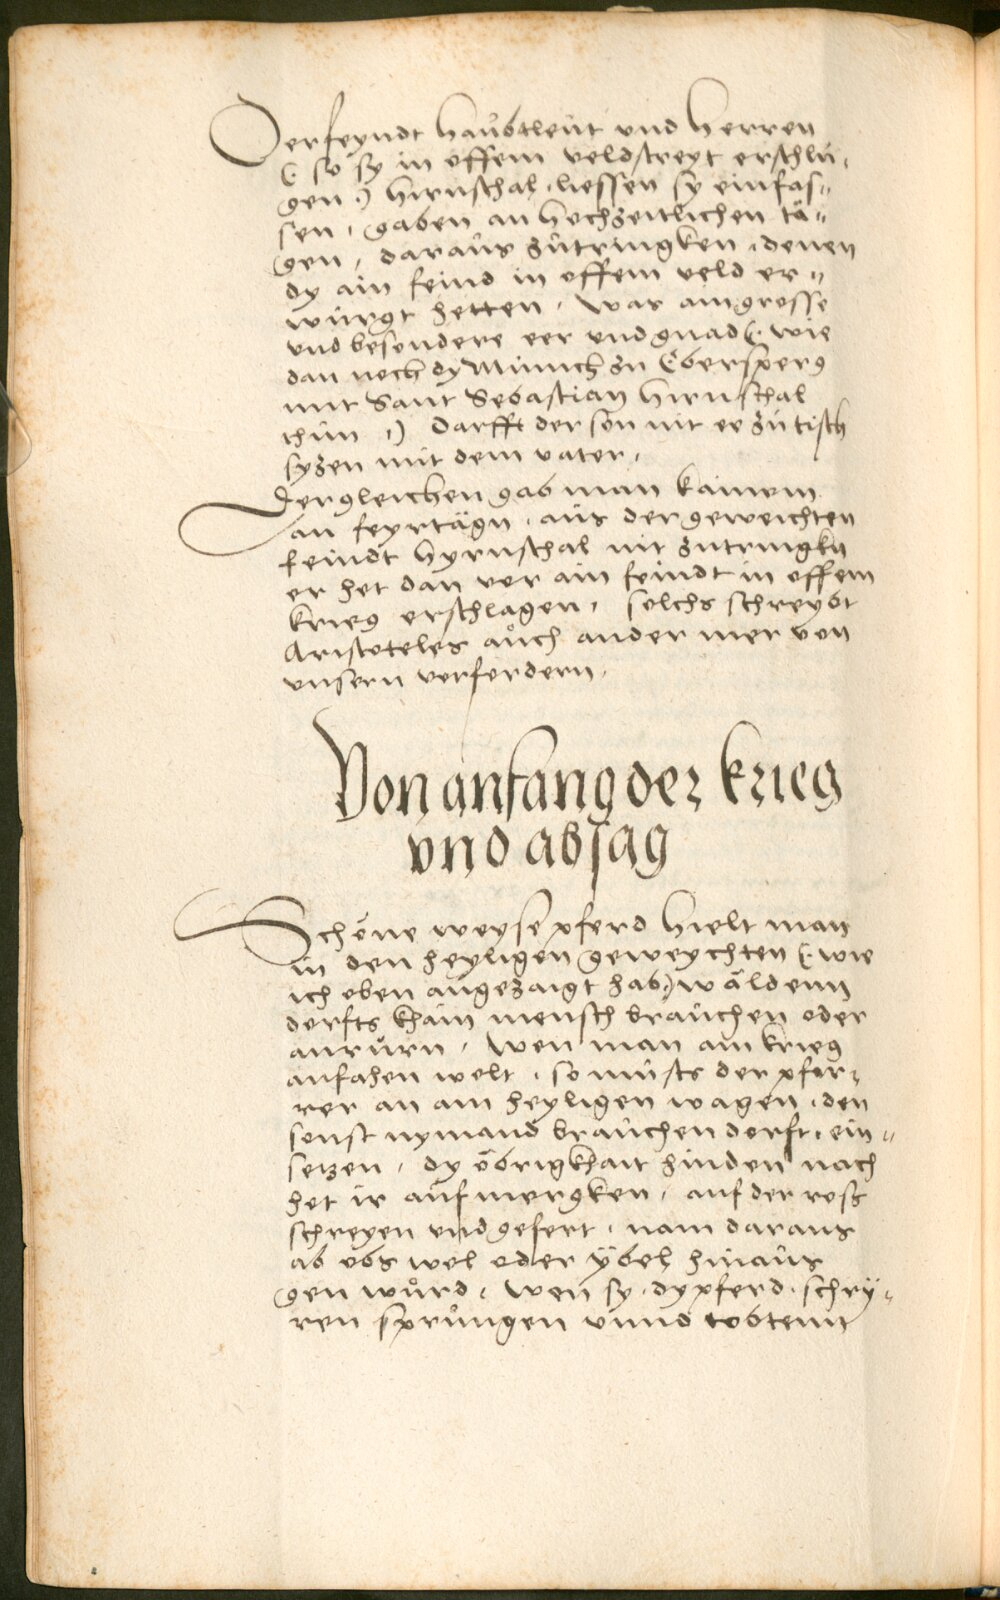 Der feyndt haübtleüt vnd herren
(: so sy in offem veldstreyt erschlu-
gen :) hirnschal, liessen sy einfas-
sen, gaben an hochzeitlichen tä-
gen, daraüs zütringken, denen
dy ain feind in offem veld er-
würgt hetten, was ain grosse
vnd besondere eer vnd gnad (: wie
dan noch dy Münich zu Ebersperg
mit Sant Sebastian hirnschal
thün :) Darfft der son nit ee zu tisch
syzen mit dem vater,
Dergleichen gab man kainem
an feyrtägn, aüs der geweichten
feindt hyrnschal nit zutringkn
er het dan vor ain feindt in offem
krieg erschlagen, solchs schreybt
Aristoteles aüch ander mer von
vnsern vorfordern,
Von anfang der krieg
vnd absag
Schöne weyse pferd hielt man
in den heyligen geweychten (: wie
ich oben angezaigt hab :) wälden
dorfts khain mensch braüchen oder
anrürn, Wen man ain krieg
anfahen wolt, so müsts der pfar-
rer an ain heyligen wagen, den
sonst nymand braüchen dorft, ein-
sezen, dy öbrigkhait hinden nach
het ir aüfmergken, auf der roß
schreyen vnd gefert, nam daraus
ab obs wol oder ÿbel hinaüs
gen würd, Wen sy, dy pferd, schrÿ-
ren sprüngen vnnd tobtenn